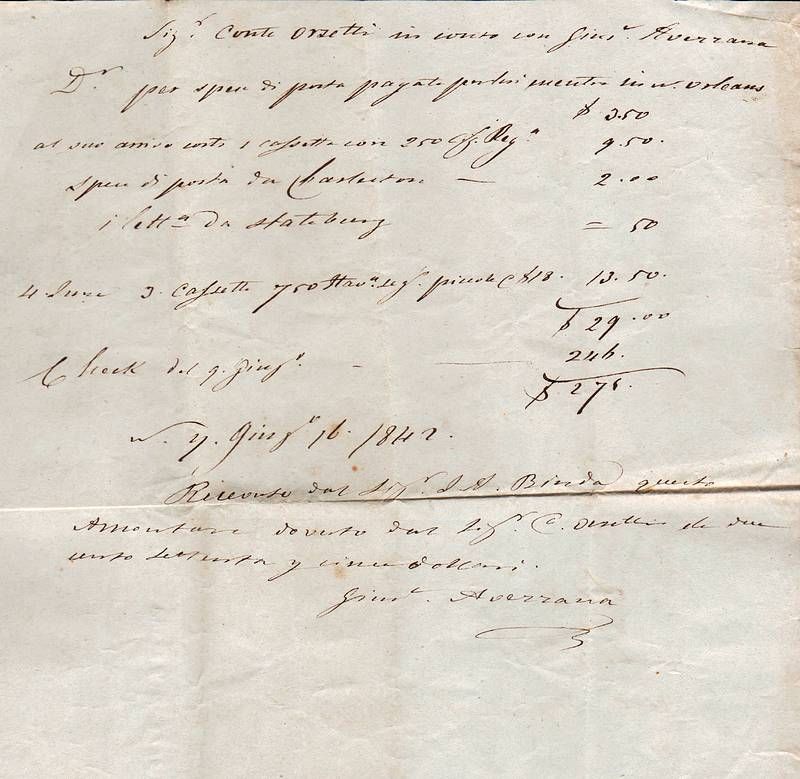 Sig.r Conte Orsetti in conto con Gius.e Avezzana
D.r per spese di posta pagate mentre in N. Orleans
$ 3.50
al suo arrivo 1 cassetta con 250 9.50.
spese di posta da Charleston — 2.00
1 lett.a da Stateburg = 50
4 3. cassette 750 Hav.a seg. piccole $18. 13.50.
$ 29.00
Check del 9. Giug.o - — 246.
$ 275.
N. Y. Giug.o 16. 1842.
Ricevuto dal Sig.r Binda questo
Amontare dovuto dal Sig.r C. Orsetti de due
cento settenta y cinco dollari.
Gius.e Avezzana